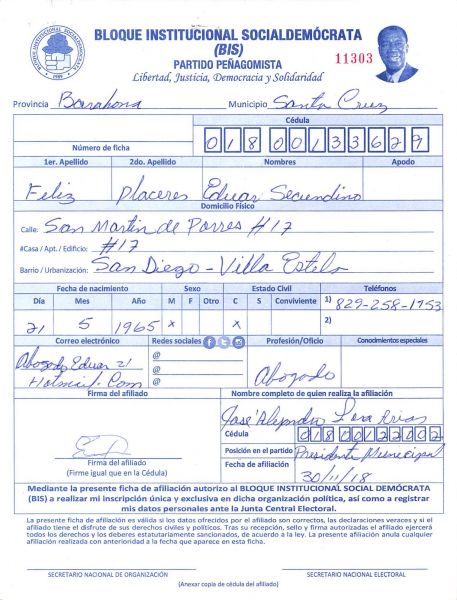 BLOQUE INSTITUCIONAL SOCIALDEMÓCRATA
(BIS)
PARTIDO PEÑAGOMISTA
11303
Libertad, Justicia, Democracia y Solidaridad
BLOQUE INSTITUCIONAL SOCIALDEMOCRATA
Provincia Barahona Municipio Santa Cruz
Cédula
Número de ficha 018 0013362 9
1er. Apellido 2do. Apellido Nombres Apodo
Feliz Placeres Eduar Secundino
Domicilio Físico
Calle: San Martin de Porres #17
#Casa / Apt. / Edificio: #17
Barrio / Urbanización: San Diego - Villa Estela
Fecha de nacimiento Sexo Estado Civil Teléfonos
Día Mes Año M F Otro C S Conviviente 1) 829-258-1953
21 5 1965 x x 2)
Correo electrónico Redes sociales Profesión/Oficio Conocimientos especiales
Abogado Eduar 21 @
Hotmail.Com @ Abogado
@
Firma del afiliado Nombre completo de quien realiza la afiliación
José Alejandro Lora Arias
Cédula
Posición en el partido Presidente Municipal
Firma del afiliado Fecha de afiliación
(Firme igual que en la Cédula) 30/11/18
Mediante la presente ficha de afiliación autorizo al BLOQUE INSTITUCIONAL SOCIAL DEMÓCRATA
(BIS) a realizar mi inscripción única y exclusiva en dicha organización política, así como a registrar
mis datos personales ante la Junta Central Electoral.
La presente ficha de afiliación es válida si los datos ofrecidos por el afiliado son correctos, las declaraciones veraces y si el
afiliado tiene el disfrute de sus derechos civiles y políticos. Tras su recepción, sello y firma autorizadas el afiliado ejercerá
todos los derechos y los deberes estatutariamente sancionados, de acuerdo a la ley. La presente afiliación anula cualquier
afiliación realizada con anterioridad a la fecha que aparece en esta ficha.
SECRETARIO NACIONAL DE ORGANIZACIÓN SECRETARIO NACIONAL ELECTORAL
(Anexar copia de cédula del afiliado)